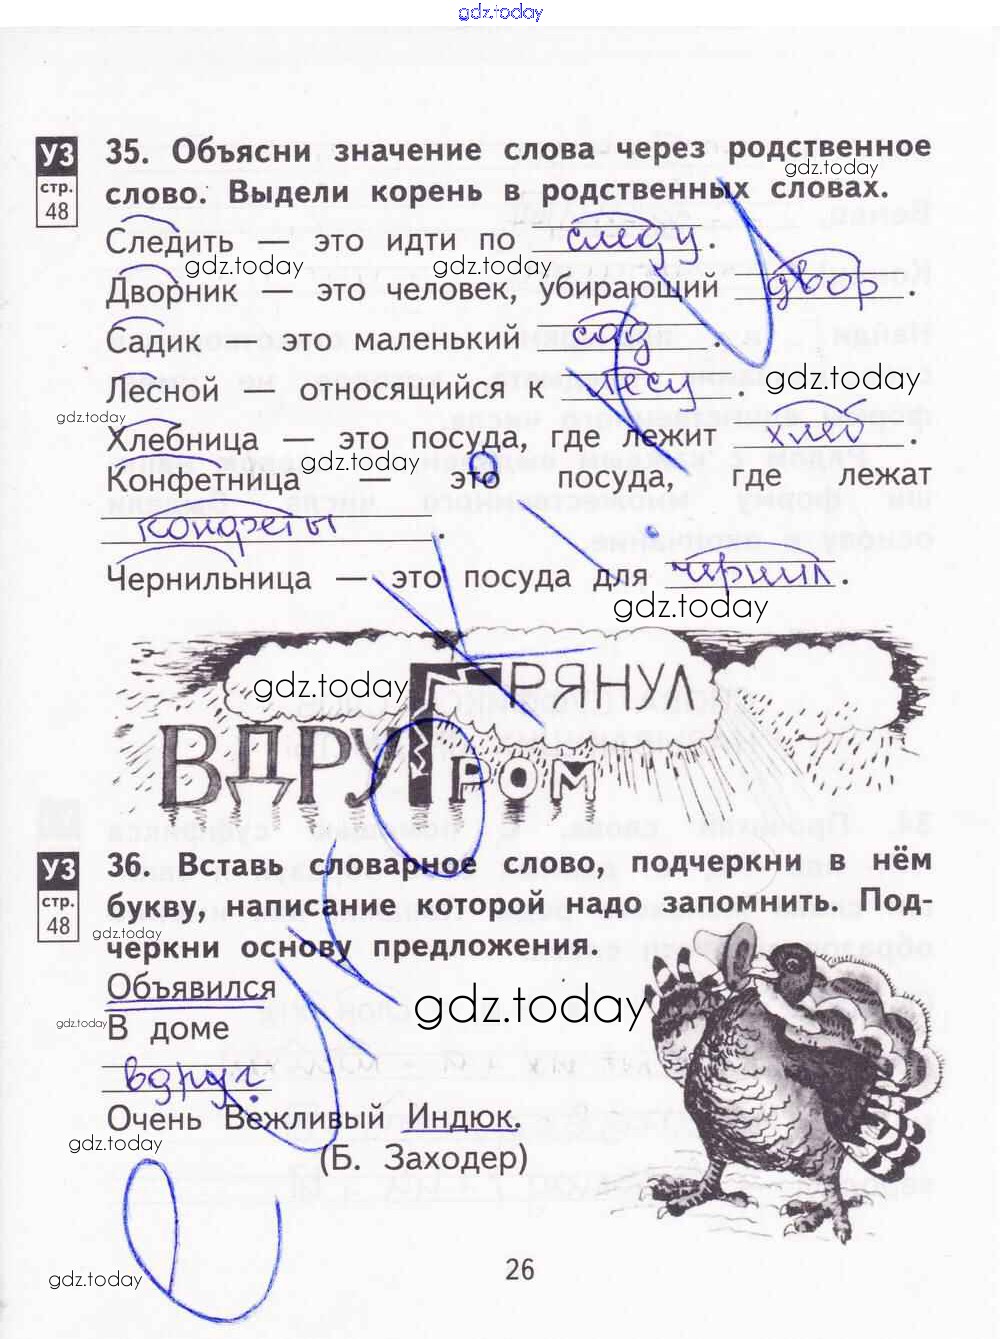 gdz.today
УЗ
стр.
48
35. Объясни значение слова через родственное
gdz.today
слово. Выдели корень в родственных словах.
Следить — это идти по следу.
gdz.today gdz.today
Дворник — это человек, убирающий двор.
Садик — это маленький сад.
gdz.today
Лесной — относящийся к лесу.
gdz.today
Хлебница — это посуда, где лежит хлеб.
gdz.today
Конфетница — это посуда, где лежат
конфеты.
Чернильница — это посуда для чернил.
gdz.today
gdz.today
ГРЯНУЛ
ВДРУГ
ГРОМ
УЗ
стр.
48
36. Вставь словарное слово, подчеркни в нём
букву, написание которой надо запомнить. Под-
gdz.today
черкни основу предложения.
Объявился
gdz.today
gdz.today
В доме
вдруг
Очень Вежливый Индюк.
gdz.today
(Б. Заходер)
26
gdz.today